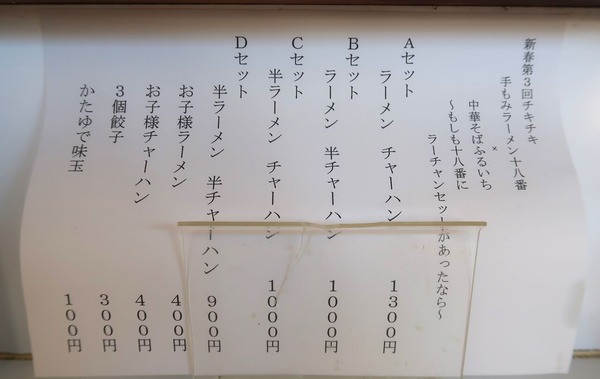 新春第3回チキチキ
手もみラーメン十八番
×
中華そばふるいち
～もしも十八番に
ラーチャンセットがあったなら～
Aセット
ラーメン チャーハン 1300円
Bセット
ラーメン 半チャーハン 1000円
Cセット
半ラーメン チャーハン 1000円
Dセット
半ラーメン 半チャーハン 900円
お子様ラーメン 400円
お子様チャーハン 400円
3個餃子 300円
かたゆで味玉 100円